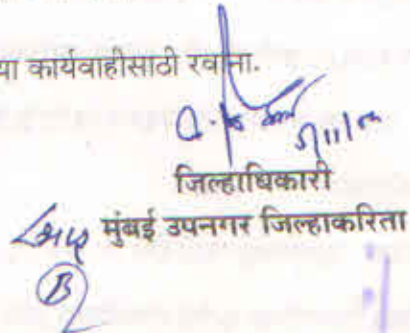 या कार्यवाहीसाठी रवाना.
जिल्हाधिकारी
मुंबई उपनगर जिल्हाकरिता
B